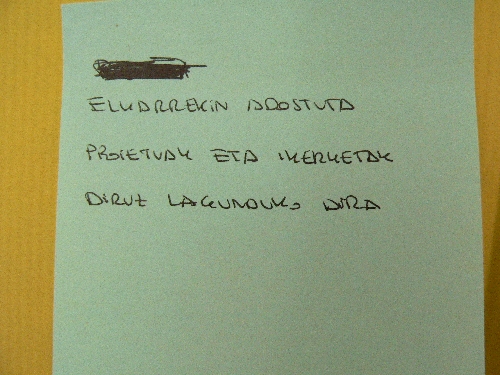 ELKARREKIN ADOSTUTA
PROIETUAK ETA IKERKETAK
DIRUZ LAGUNDUKO DIRA